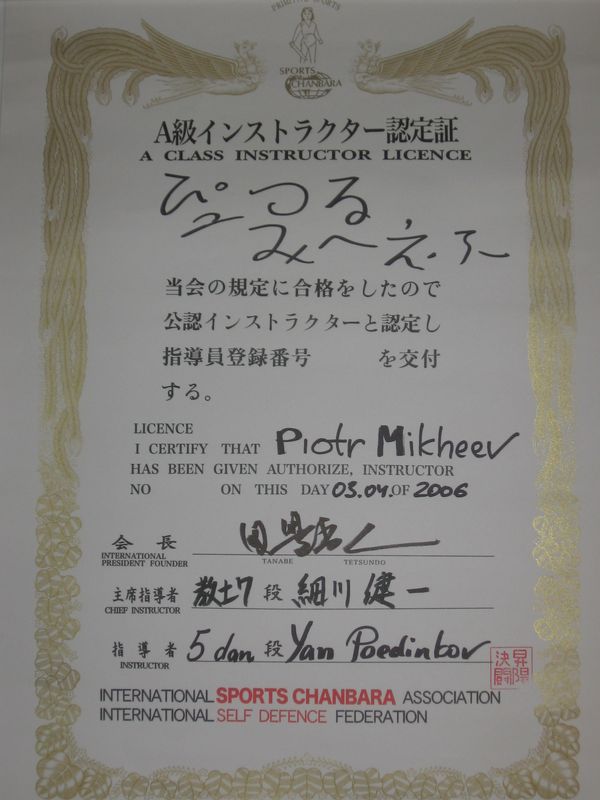 PRIMITIVE SPORTS
SPORTS
CHANBARA
A級インストラクター認定証
A CLASS INSTRUCTOR LICENCE
ぴょつる
みへえふ
当会の規定に合格をしたので
公認インストラクターと認定し
指導員登録番号 を交付
する。
LICENCE
I CERTIFY THAT Piotr Mikheev
HAS BEEN GIVEN AUTHORIZE, INSTRUCTOR
NO ON THIS DAY 03.04.OF 2006
会長
INTERNATIONAL
PRESIDENT FOUNDER
TANABE TETSUNDO
主席指導者 教士7段 細川健一
CHIEF INSTRUCTOR
指導者 5 dan 段 Yan Poedinkov
INSTRUCTOR
昇陽
決闘
INTERNATIONAL SPORTS CHANBARA ASSOCIATION
INTERNATIONAL SELF DEFENCE FEDERATION